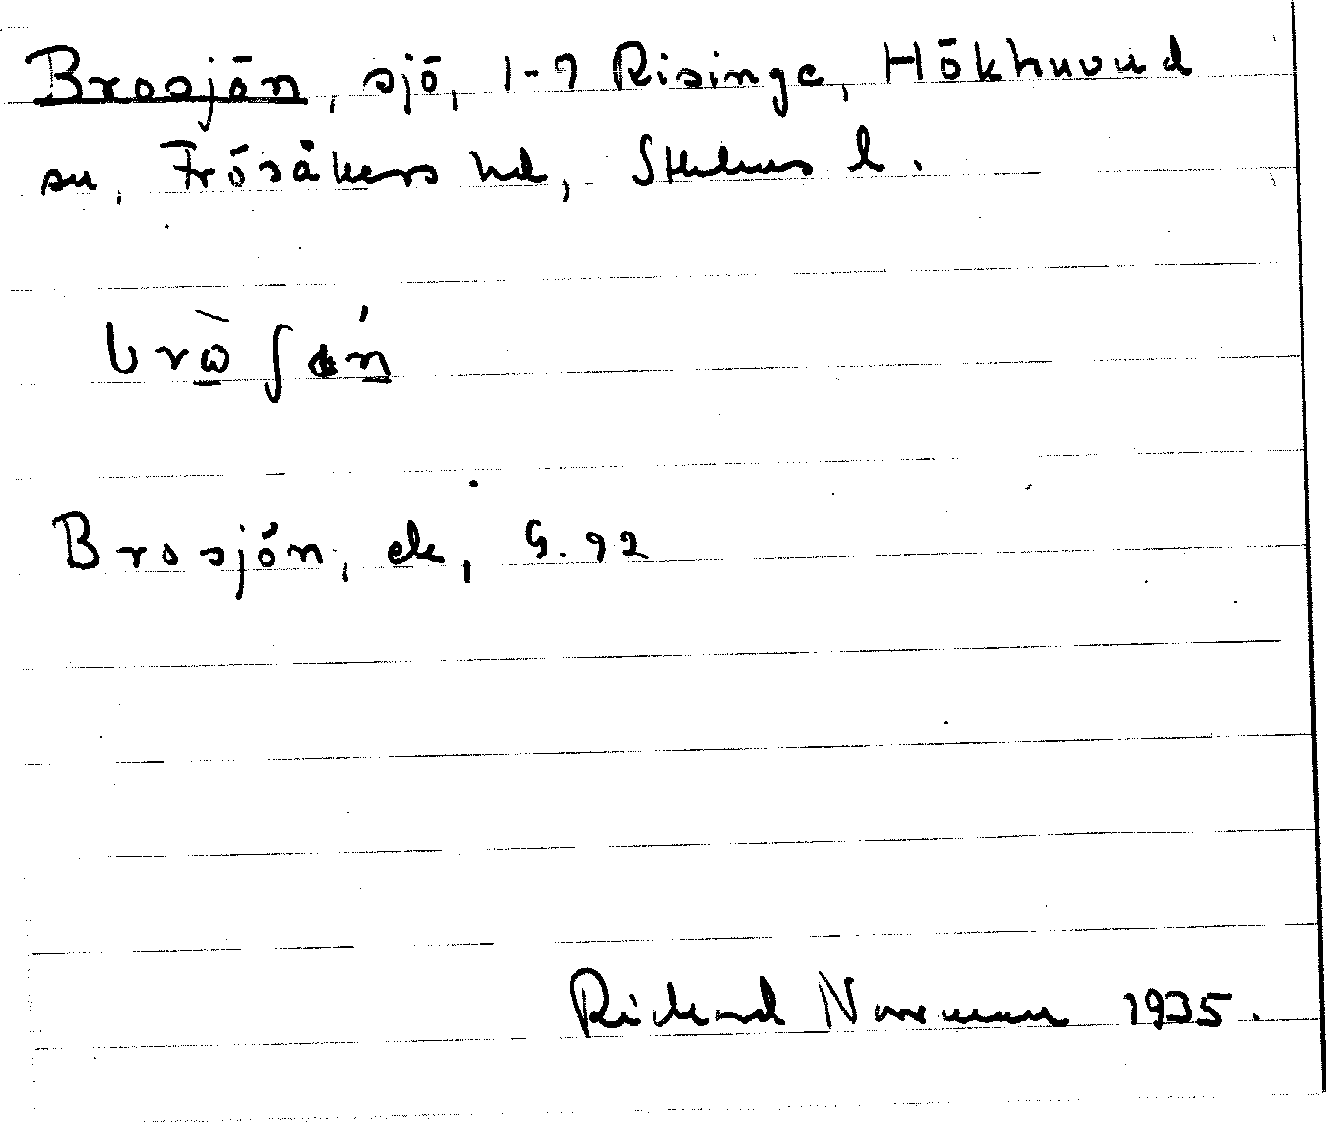 Brosjön, sjö, 1-9 Risinge, Hökhuvud
sn, Frösåkers hd, Sthlms l.
Brosjön, ek, G. 92
Rickard Norrman 1935.